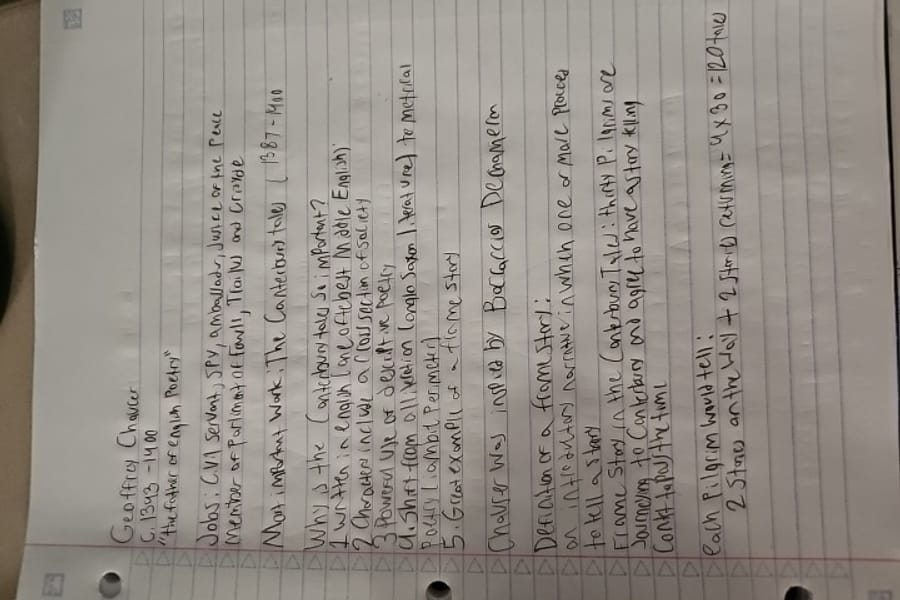 Geoffrey Chaucer
C. 1343 - 1400
"the father of english Poetry"
Jobs: Civil servant, SPY, ambassador, Justice of the Peace
member of Parliment of Fowls, Troilus and Criseyde
Most important work: The Canterbury tales (1387-1400
Why is the Canterbury tales so important?
1. written in english (one of the best Middle English)
2. Characters include a cross section of society
3. Powerful use of descriptive Poetry
4. Shift from alliteration (anglo Saxon literature) to metrical
Poetry (iambic Perimeter)
5. Great example of a frame story
Chaucer was inspired by Boccaccios Decamperm
Definition of a frame story:
an introductory narrative in which one or more Proceed
to tell a story
Frame story in the Canterbury Tales: thirty Pilgrims are
Journeying to Canterbury and agree to have a story telling
to Pass the time
each Pilgrim would tell:
2 stories on the way + 2 stories returning = 4 x 30 = 120 tales